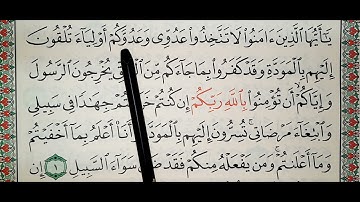 يَٰٓأَيُّهَا ٱلَّذِينَ ءَامَنُوا۟ لَا تَتَّخِذُوا۟ عَدُوِّى وَعَدُوَّكُمْ أَوْلِيَآءَ تُلْقُونَ
إِلَيْهِم بِٱلْمَوَدَّةِ وَقَدْ كَفَرُوا۟ بِمَا جَآءَكُم مِّنَ يُخْرِجُونَ ٱلرَّسُولَ
وَإِيَّاكُمْ أَن تُؤْمِنُوا۟ بِٱللَّهِ رَبِّكُمْ إِن كُنتُمْ جِهَٰدًا فِى سَبِيلِى
وَٱبْتِغَآءَ مَرْضَاتِى تُسِرُّونَ إِلَيْهِم بِٱلْمَوَدَّةِ وَأَنَا۠ أَعْلَمُ بِمَآ أَخْفَيْتُمْ
وَمَآ أَعْلَنتُمْ وَمَن يَفْعَلْهُ مِنكُمْ فَقَدْ ضَلَّ سَوَآءَ ٱلسَّبِيلِ ١ إِن